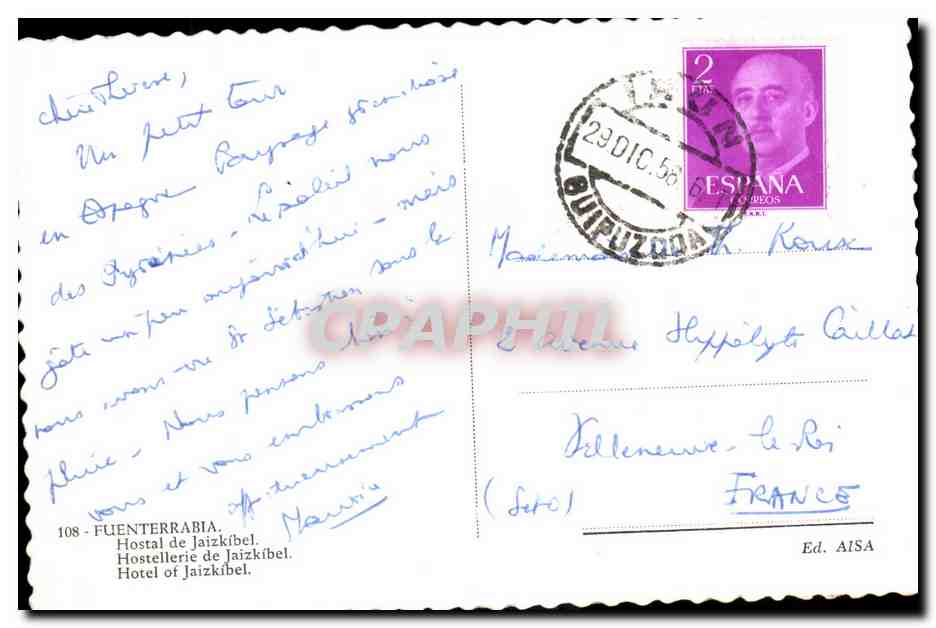 Chère Thérèse,
Un petit tour
en Espagne Paysage grandiose
des Pyrénées - le soleil nous
gâte un peu aujourd'hui - mais
nous avons vu St Sébastien sous la
pluie - Nous pensons bien à
vous et vous embrassons
affectueusement
108 - FUENTERRABIA.
Hostal de Jaizkíbel.
Hostellerie de Jaizkíbel.
Hotel of Jaizkíbel.
2 PTAS
ESPAÑA
CORREOS
F.N.M.T.
IRUN
29 DIC. 56
GUIPUZCOA
Th. Roux
2 avenue Hippolyte Caillat
Villeneuve-le-Roi
(S et O)
FRANCE
Ed. AISA
CPAPHIL